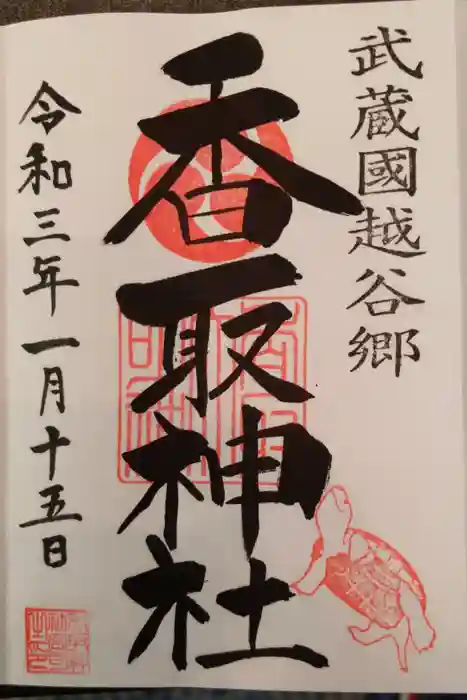 武蔵國越谷郷
香取神社
令和三年一月十五日